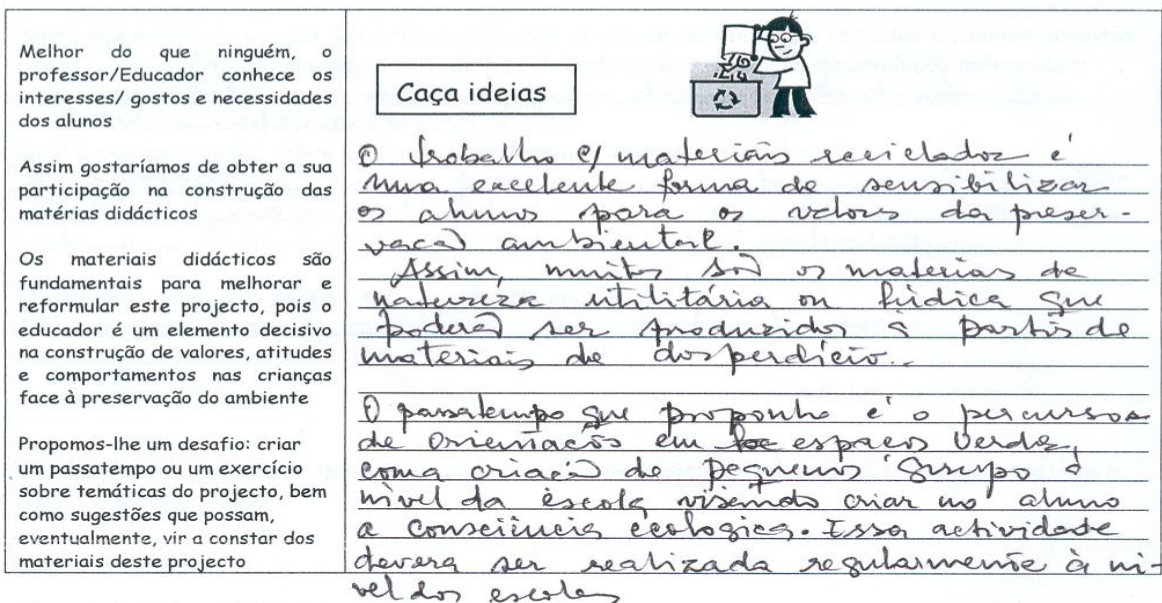 Melhor do que ninguém, o
professor/Educador conhece os
interesses/ gostos e necessidades
dos alunos
Assim gostaríamos de obter a sua
participação na construção das
matérias didácticos
Os materiais didácticos são
fundamentais para melhorar e
reformular este projecto, pois o
educador é um elemento decisivo
na construção de valores, atitudes
e comportamentos nas crianças
face à preservação do ambiente
Propomos-lhe um desafio: criar
um passatempo ou um exercício
sobre temáticas do projecto, bem
como sugestões que possam,
eventualmente, vir a constar dos
materiais deste projecto
Caça ideias
O trabalho c/ materiais reciclados é
uma excelente forma de sensibilizar
os alunos para os valores da preser-
vação ambiental.
Assim, muitos são os materiais de
natureza utilitária ou lúdica que
poderão ser produzidos a partir de
materiais de desperdício..
O passatempo que proponho é o percurso
de orientação em espaços verdes,
com a criação de pequenos grupos à
nível da escola visando criar no aluno
a consciência ecológica. Essa actividade
devera ser realizada regularmente à ní-
vel das escolas